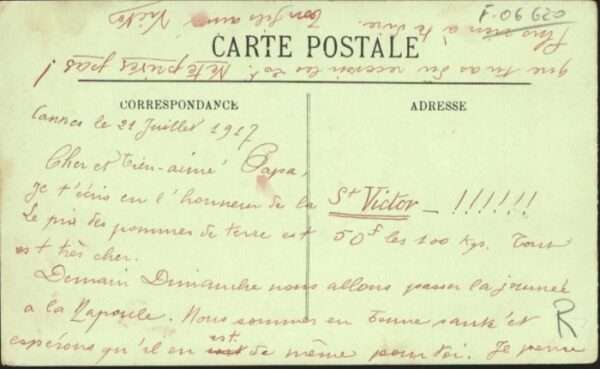 F-06 620
CARTE POSTALE
CORRESPONDANCE
ADRESSE
Cannes le 21 Juillet 1917
Cher et bien-aimé Papa,
Je t'écris en l'honneur de la St Victor _ !!!!!!
Le prix des pommes de terre est 50f les 100 Kgs. Tout
est très cher.
Demain Dimanche nous allons passer la journée
a la Napoule. Nous sommes en bonne santé et
espérons qu'il en est de même pour toi. Je pense
que tu as dû recevoir les . Ne te prives pas !
Plus rien à te dire.
Ton fils aimé Victor
R